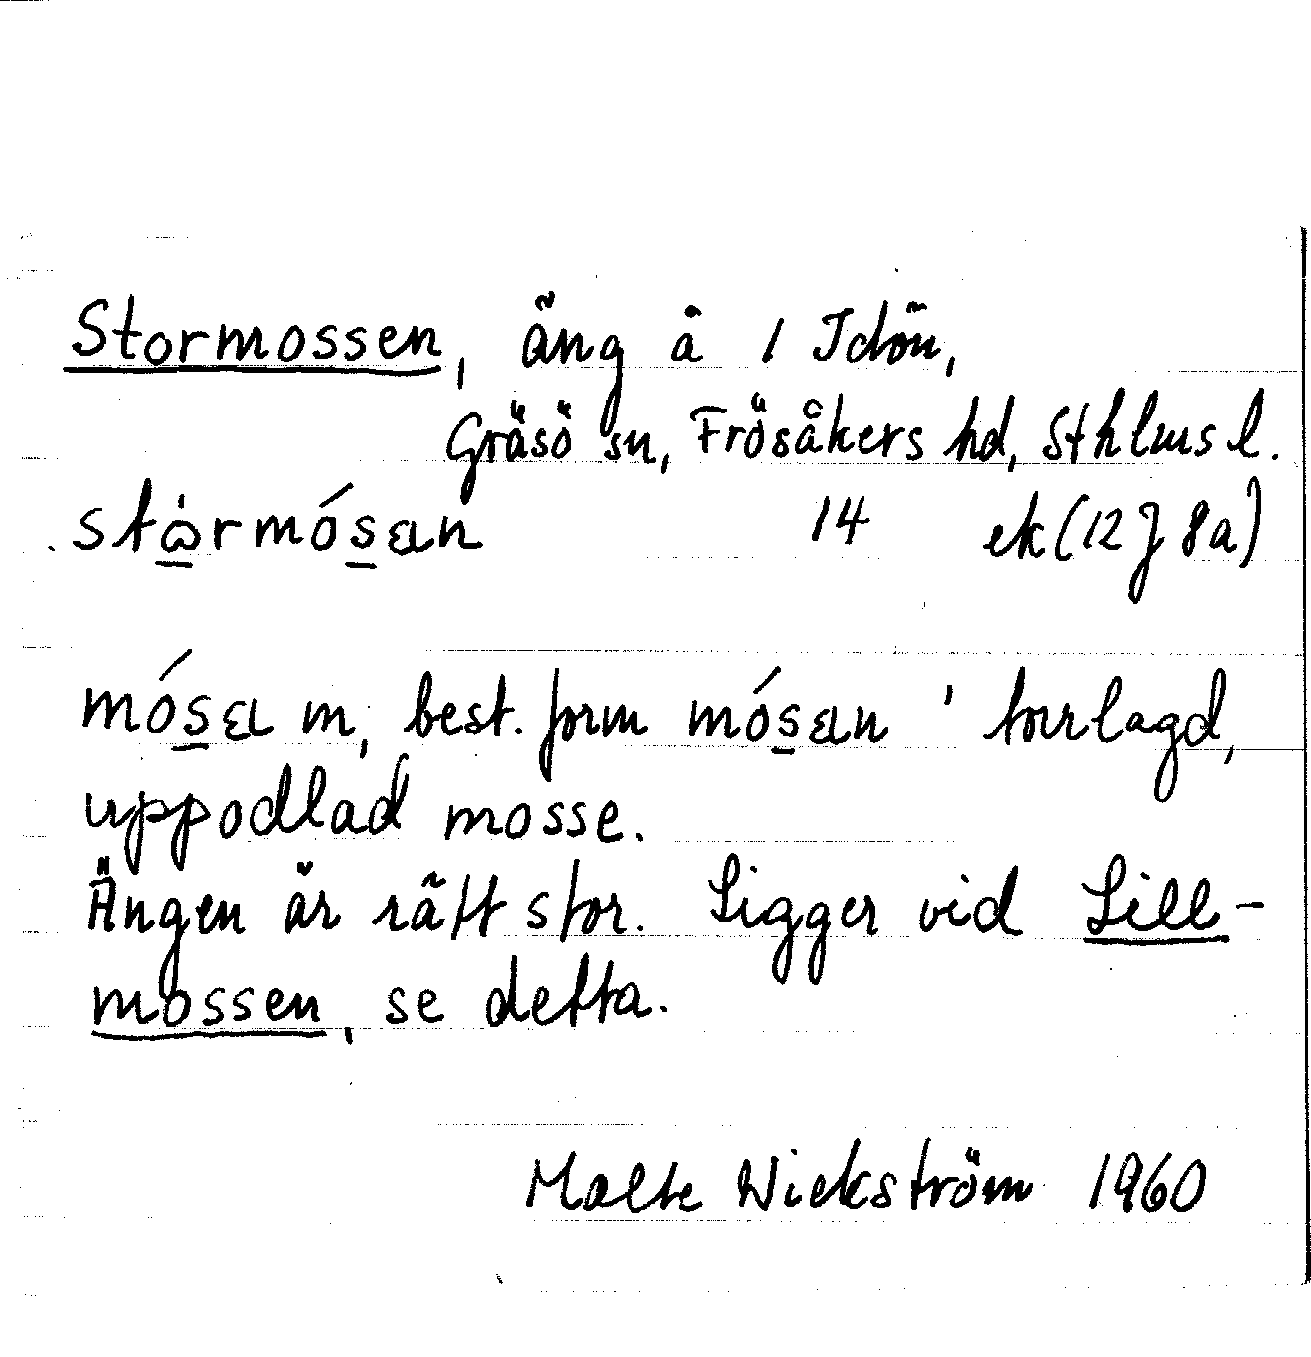 Stormossen, äng å 1 Idön,
Gräsö sn, Frösåkers hd, Sthlms l.
stὼrmósan 14 ek (12J 8a)
mósa m, best. form mósan ' torrlagd,
uppodlad mosse.
Ängen är rätt stor. Ligger vid Lill-
mossen, se detta.
Malte Wickström 1960